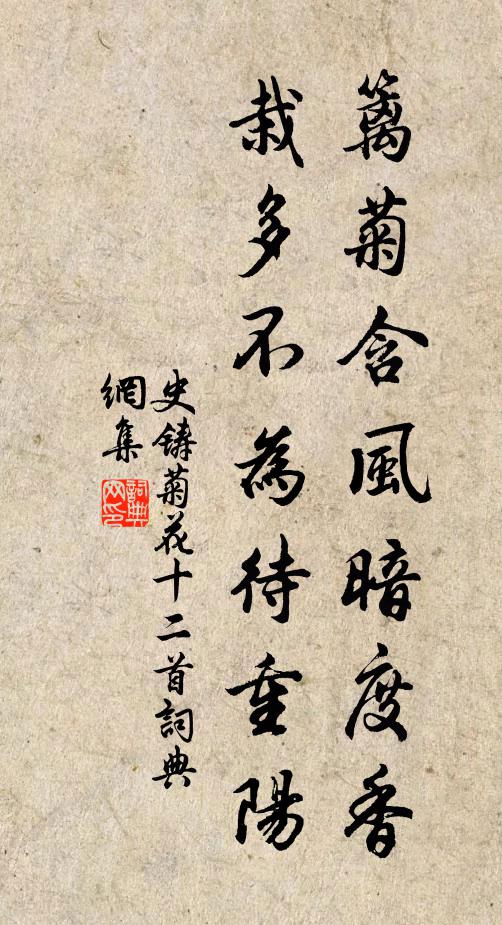 籬菊含風暗度香
栽多不為待重陽
史鑄菊花十二首詞典
網集
詞典
网印